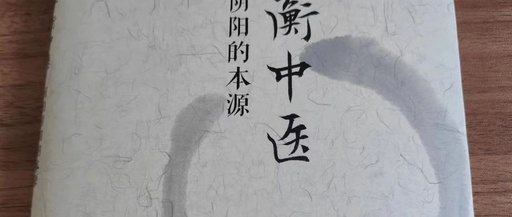 衡中医
阴阳的本源